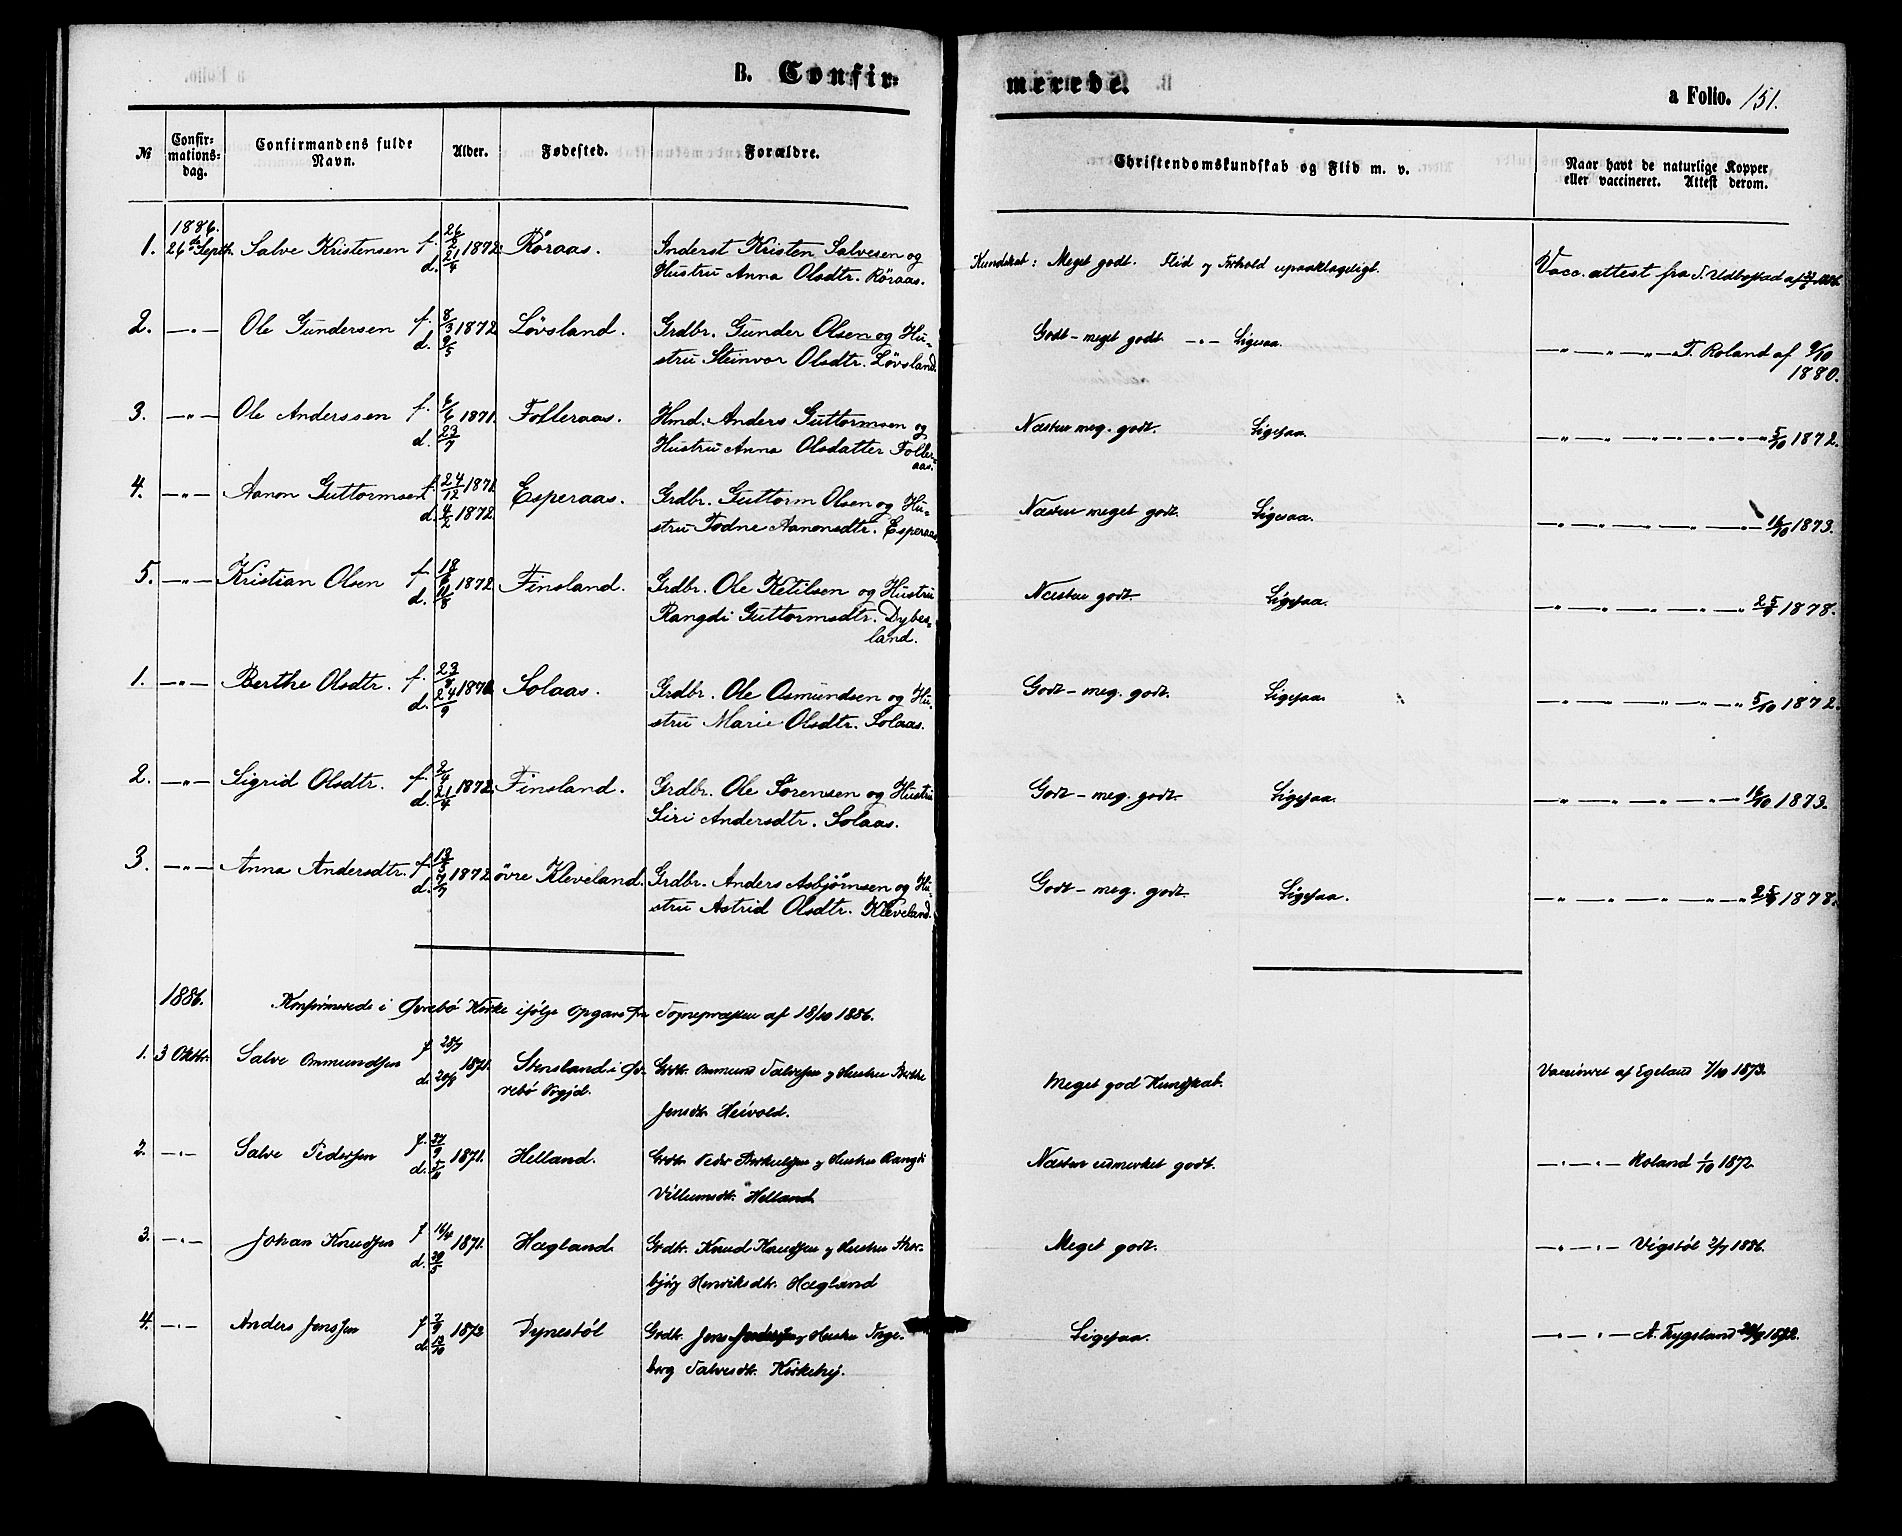 B. Confir=
merede.
a Folio. 151.
№
Confir=
mations=
dag.
Confirmandens fulde
Navn.
Alder.
Fødested.
Forældre.
Christendomskundskab og Flid m. v.
Naar havt de naturlige Kopper
eller vaccineret. Attest derom.
1886.
1. 26de Septr. Salve Kristensen f. 26/2 1872. Røraas. Inderst Kristen Salvesen og
d. 21/4 Hustru Anna Olsdtr. Røraas.
Kundskab: Meget godt. Flid og Forhold upaaklageligt. Vacc. attest fra T. Udbostad af 1886.
2. —„— Ole Gundersen f. 8/3 1872 Løvsland. Grdbr. Gunder Olsen og Hu-
d. 9/5 stru Steinvor Olsdtr. Løvsland.
Godt - meget godt. —„— Ligesaa. —„—„—„— T. Roland af 9/10
1880.
3. —„— Ole Anderssen f. 6/6 1871. Folleraas. Hmd. Anders Guttormsen og
d. 23/7 Hustru Anna Olsdatter Foller-
aas.
Næsten meg. godt. Ligesaa. —„—„—„—„—„ 5/10 1872.
4. —„— Aanon Guttormsen f. 24/12 1871. Esperaas. Grdbr. Guttorm Olsen og Hu-
d. 4/2 1872. stru Todne Aanonsdtr. Esperaas
Næsten meget godt. Ligesaa. —„—„—„—„—„ 16/10 1873.
5. —„— Kristian Olsen f. 18/6 1872 Finsland. Grdbr. Ole Ketilsen og Hustru
d. 11/8 Rangdi Guttormsdtr. Dybes-
land.
Næsten godt. Ligesaa. —„—„—„—„—„ 25/9 1878.
1. —„— Berthe Olsdtr. f. 23/8 1871. Solaas. Grdbr. Ole Osmundsen og Hu-
d. 24/9 stru Marie Olsdtr. Solaas.
Godt - meg. godt. Ligesaa. —„—„—„—„—„ 5/10 1872.
2. —„— Sigrid Olsdtr. f. 2/4 1872. Finsland. Grdbr. Ole Sørensen og Hustru
d. 21/4 Siri Andersdtr. Solaas.
Godt - meg. godt. Ligesaa. —„—„—„—„—„ 16/10 1873.
3. —„— Anna Andersdtr. f. 1872 øvre Kleveland. Grdbr. Anders Asbjørnsen og Hu-
d. 7/7 stru Astrid Olsdtr. Kleveland.
Godt - meg. godt. Ligesaa. —„—„—„—„—„ 25/9 1878.
1886. Konfirmerede i Øvrebø Kirke ifølge Opgave fra Sognepræsten af 18/10 1886.
1. 3 Oktbr. Salve Ommundsen f. 28/7 1871. Stensland i Øv- Grdbr. Ommund Salvesen og Hustru Berthe
d. 20/8 rebø Prgjd. Jensdtr. Heivold.
Meget god Kundskab. Vaccineret af Egeland 7/10 1873.
2. —„— Salve Pedersen f. 27/9 1871. Helland. Grdbr. Peder Terkelsen og Hustru Rangdi
d. 5/11 Villumsdtr. Helland
Næsten udmerket godt. —„—„— Roland 1/10 1872
3. —„— Johan Knudsen f. 16/4 1871. Hægland. Grdbr. Knud Knudsen og Hustru Thor-
d. 30/5 bjørg Henriksdtr. Hægland
Meget godt. —„—„— Vigstøl 2/7 1886.
4. —„— Anders Jenssen f. 7/9 1872 Dynestøl Grdbr. Jens Andersen og Hustru Inge-
d. 13/10 borg Salvesdtr. Kirkehej.
Ligesaa. —„—„— A. Trygsland 28/9 1872.